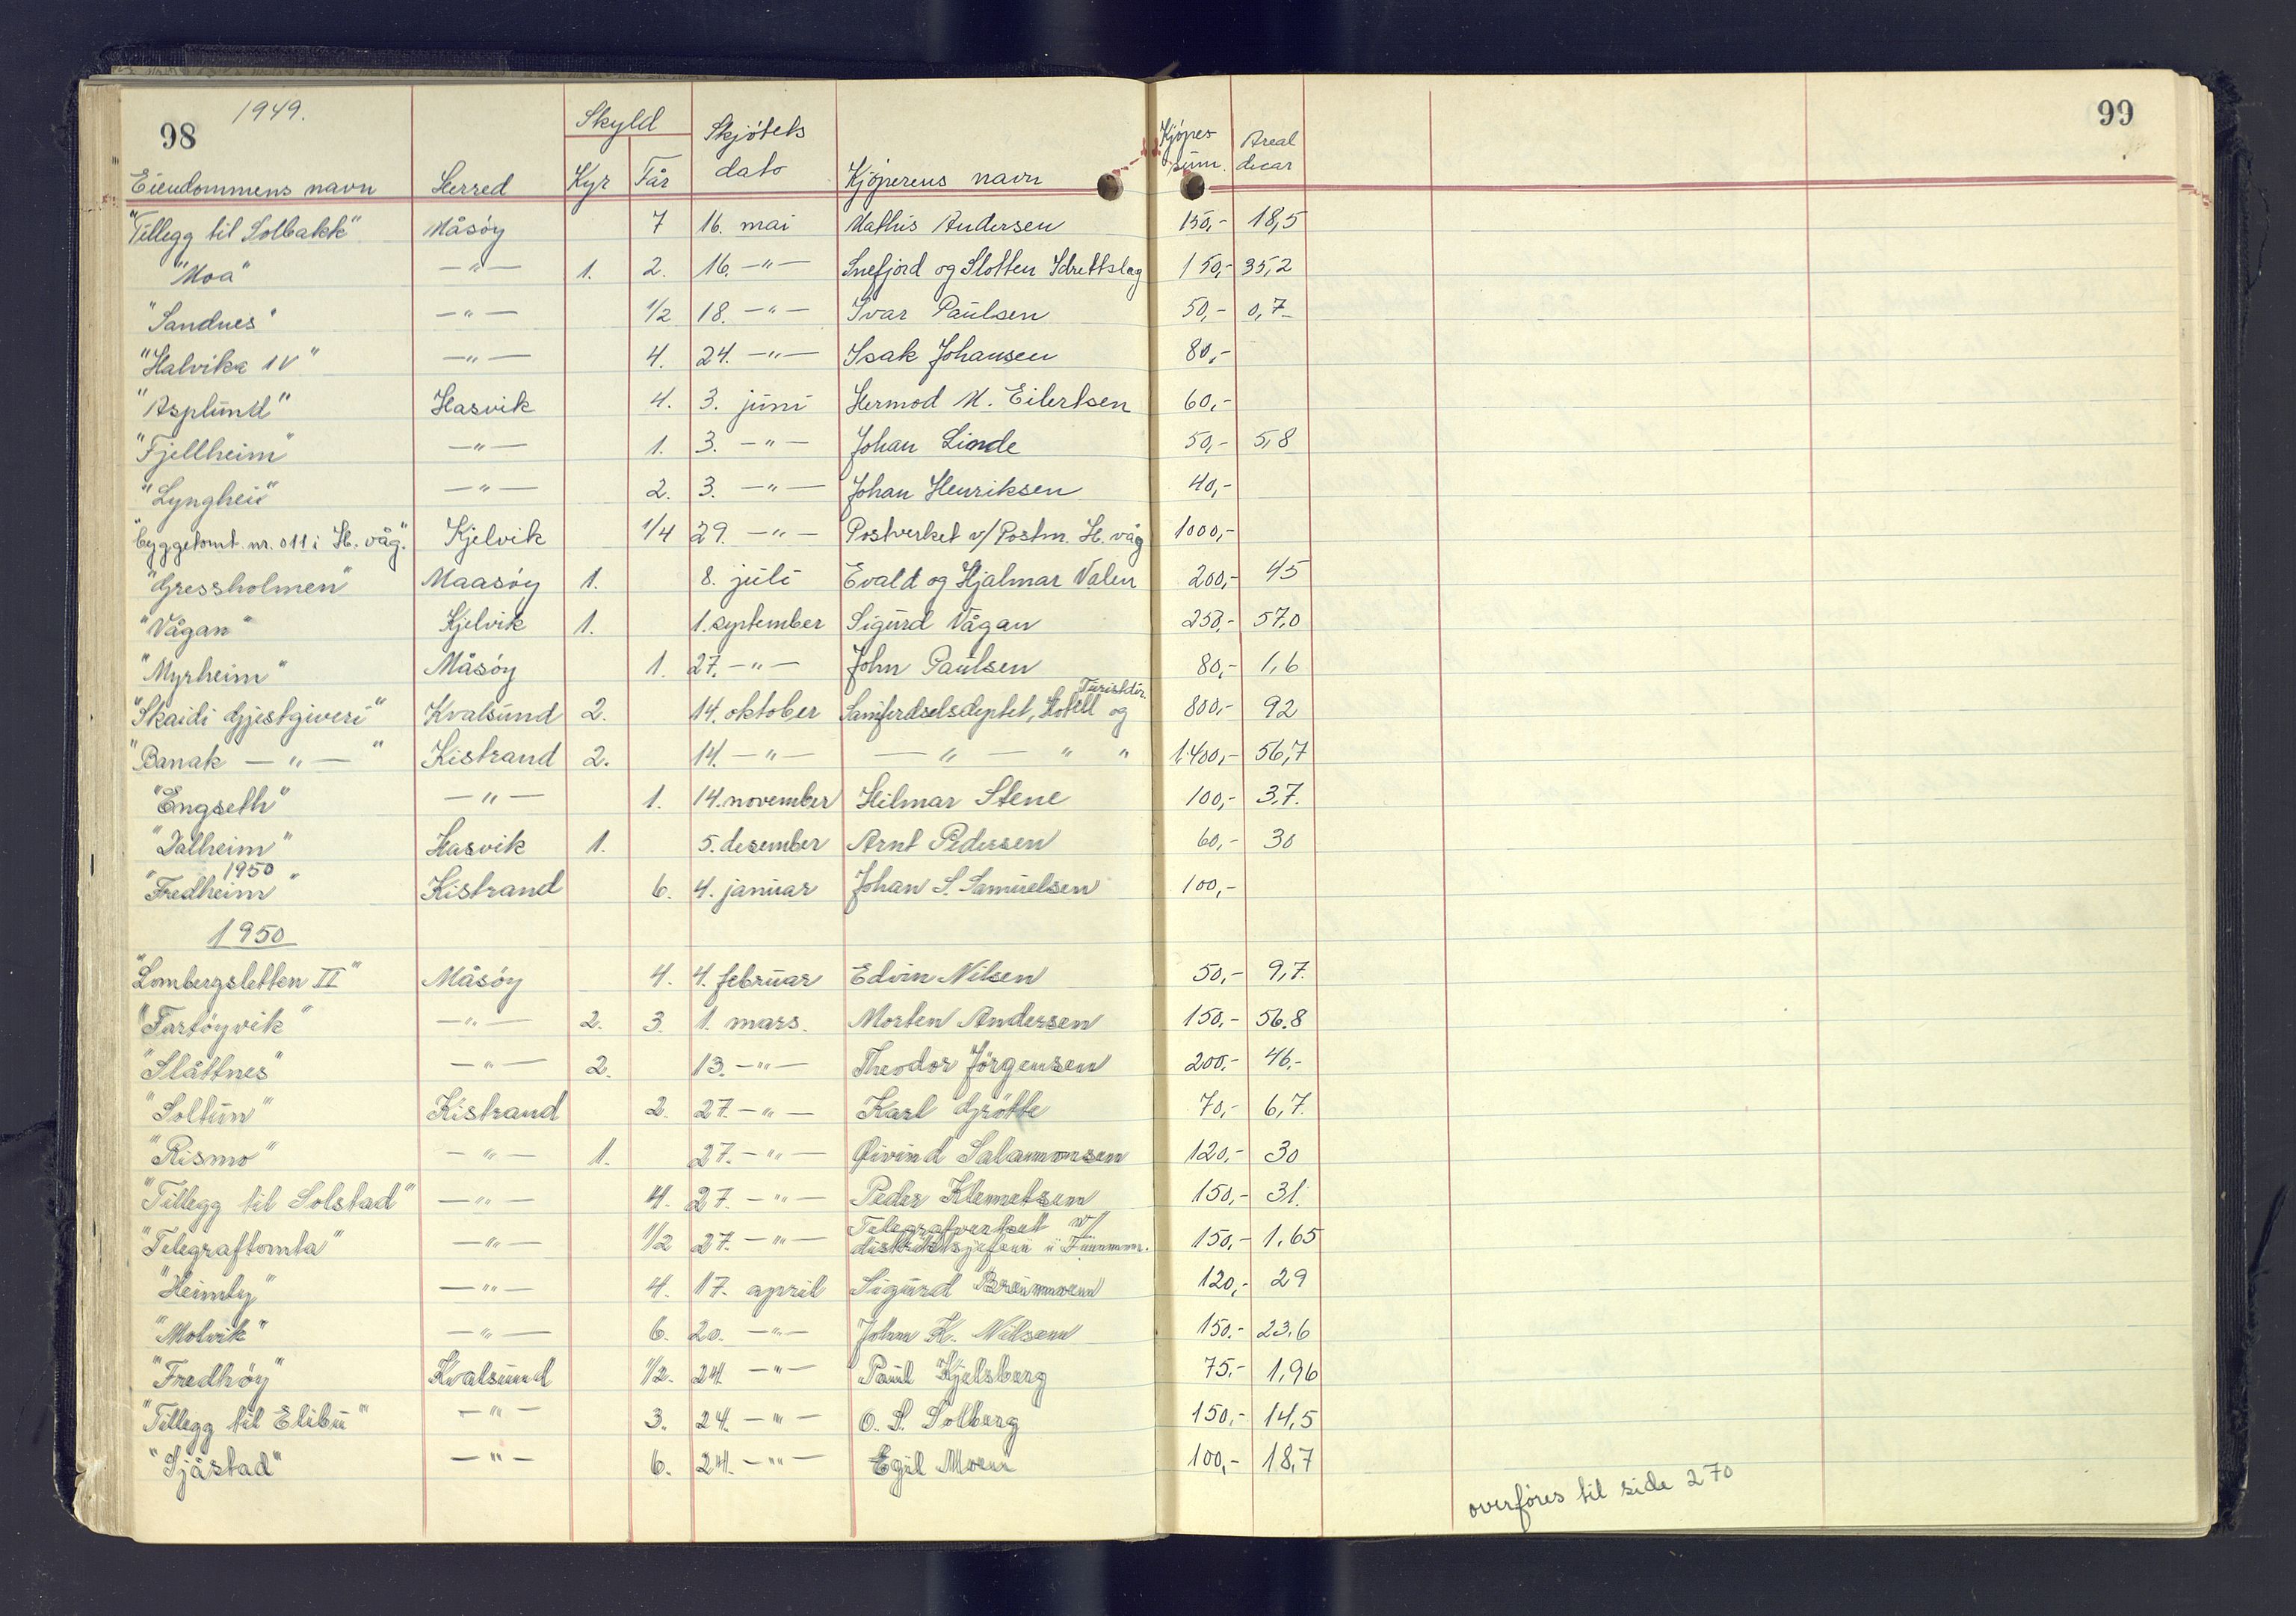 98 1949. 99
Skyld Skjötets dato Kjöpesum. Areal decar
Eiendommens navn Herred Kyr Får Kjöperens navn
"Tillegg til Solbakk" Måsöy 7 16. mai Mathis Andersen 150,- 18,5
"Moa" —"— 1. 2. 16. —"— Snefjord og Slotten Idrettslag 150,- 35,2
"Sandnes" —"— 1/2 18. —"— Ivar Paulsen 50,- 0,7
"Halvika IV" —"— 4. 24. —"— Isak Johansen 80,-
"Asplund" Hasvik 4. 3. juni Hermod M. Eilertsen 60,-
"Fjellheim" —"— 1. 3. —"— Johan Linde 50,- 5,8
"Lynghei" —"— 2. 3. —"— Johan Henriksen 40,-
"Byggetomt nr. 011 i H. våg." Kjelvik 1/4 29. —"— Postverket v/ Postm. H. våg 1000,-
"Gressholmen" Maasöy 1. 8. juli Evald og Hjalmar Valen 200,- 45
"Vågan" Kjelvik 1. 1. september Sigurd Vågan 250,- 57,0
"Myrheim" Måsöy 1. 27. —"— John Paulsen 80,- 1,6
"Skaidi Gjestgiveri" Kvalsund 2. 14. oktober Samferdselsdeptet, Hotell og Turistdir. 800,- 92
"Banak —"—" Kistrand 2. 14. —"— —"— " " 1.400,- 56,7
"Engseth" —"— 1. 14. november Hilmar Stene 100,- 3,7.
"Dalheim" Hasvik 1. 5. desember Arnt Pedersen 60,- 30
1950
"Fredheim" Kistrand 6. 4. januar Johan S. Samuelsen 100,-
1950
"Lombergsletten II" Måsöy 4. 4. februar Edvin Nilsen 50,- 9,7.
"Fartöyvik" —"— 2. 3. 1. mars. Morten Andersen 150,- 56.8
"Slåttnes" —"— 2. 13. —"— Theodor Jörgensen 200,- 46,-
"Soltun" Kistrand 2. 27. —"— Karl Grötte 70,- 6,7.
"Rismo" —"— 1. 27. —"— Øivind Salamonsen 120,- 30
"Tillegg til Solstad" —"— 4. 27. —"— Peder Klemetsen 150,- 31.
"Telegraftomta" —"— 1/2 27. —"— Telegrafverket v/ distriktsjefen i Finnmark. 150,- 1.65
"Heimly" —"— 4. 17. april Sigurd 120,- 29
"Molvik" —"— 6. 20. —"— Johan K. Nilsen 150.- 23.6
"Fredhöy" Kvalsund 1/2. 24. —"— Paul Kjelsberg 75.- 1,96
"Tillegg til Elibu" —"— 3. 24. —"— O. S. Solberg 150,- 14,5
"Sjåstad" —"— 6. 24. —"— Egil Moen 100,- 18,7
overföres til side 270